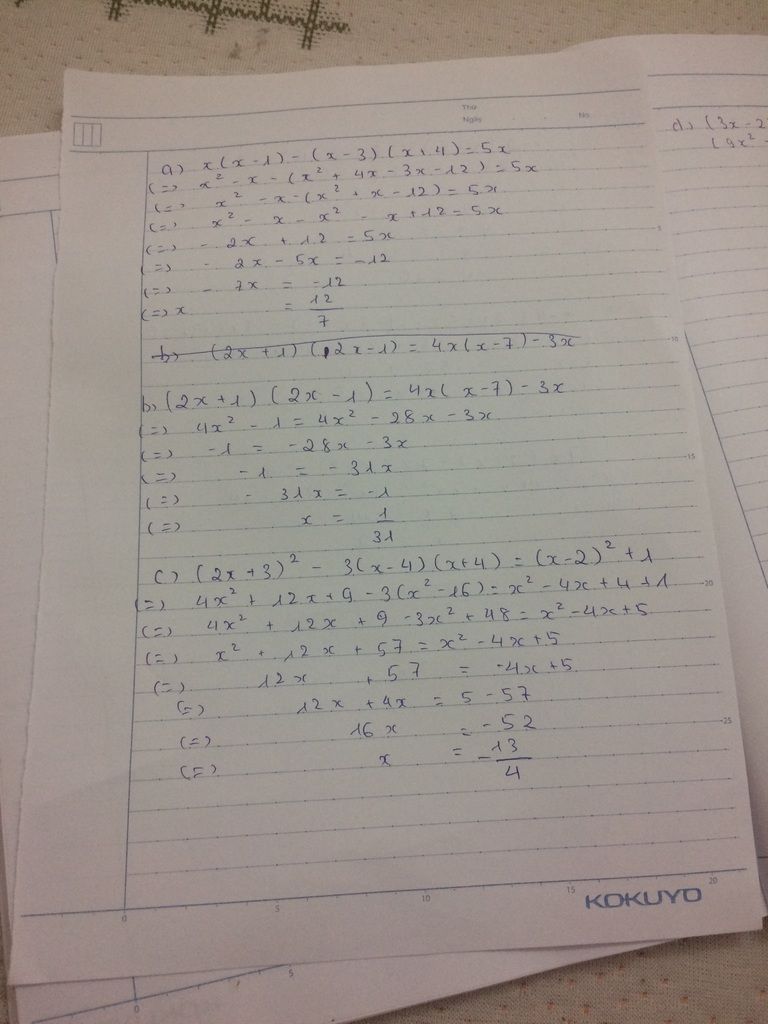 Thứ
Ngày No.
a) x(x-1) - (x-3)(x+4) = 5x
(=) x² - x - (x² + 4x - 3x - 12) = 5x
(=) x² - x - (x² + x - 12) = 5x
(=) x² - x - x² - x + 12 = 5x
(=) - 2x + 12 = 5x
(=) - 2x - 5x = -12
(=) - 7x = -12
(=) x = 12/7
b) (2x+1)(2x-1) = 4x(x-7) - 3x
b) (2x+1)(2x-1) = 4x(x-7) - 3x
(=) 4x² - 1 = 4x² - 28x - 3x
(=) -1 = -28x - 3x
(=) -1 = -31x
(=) - 31x = -1
(=) x = 1/31
c) (2x+3)² - 3(x-4)(x+4) = (x-2)² + 1
(=) 4x² + 12x + 9 - 3(x² - 16) = x² - 4x + 4 + 1
(=) 4x² + 12x + 9 - 3x² + 48 = x² - 4x + 5
(=) x² + 12x + 57 = x² - 4x + 5
(=) 12x + 57 = -4x + 5
(=) 12x + 4x = 5 - 57
(=) 16x = -52
(=) x = -13/4
5
10
15
20
25
0 5 10 15 20
KOKUYO
d) (3x-2
(9x² -
0 5